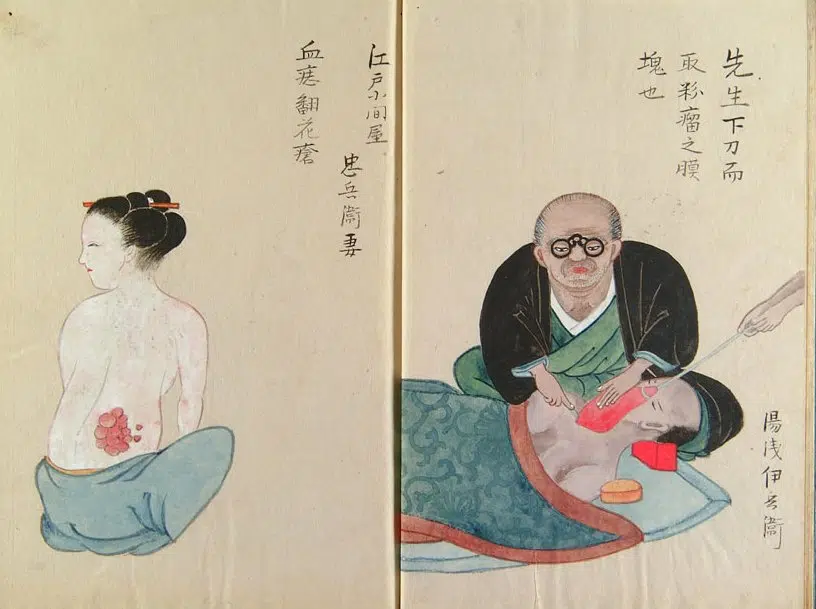 先生下刀而
取粉瘤之膜
塊也
湯浅伊兵衞
江戸小間屋
忠兵衞妻
血痣翻花瘡